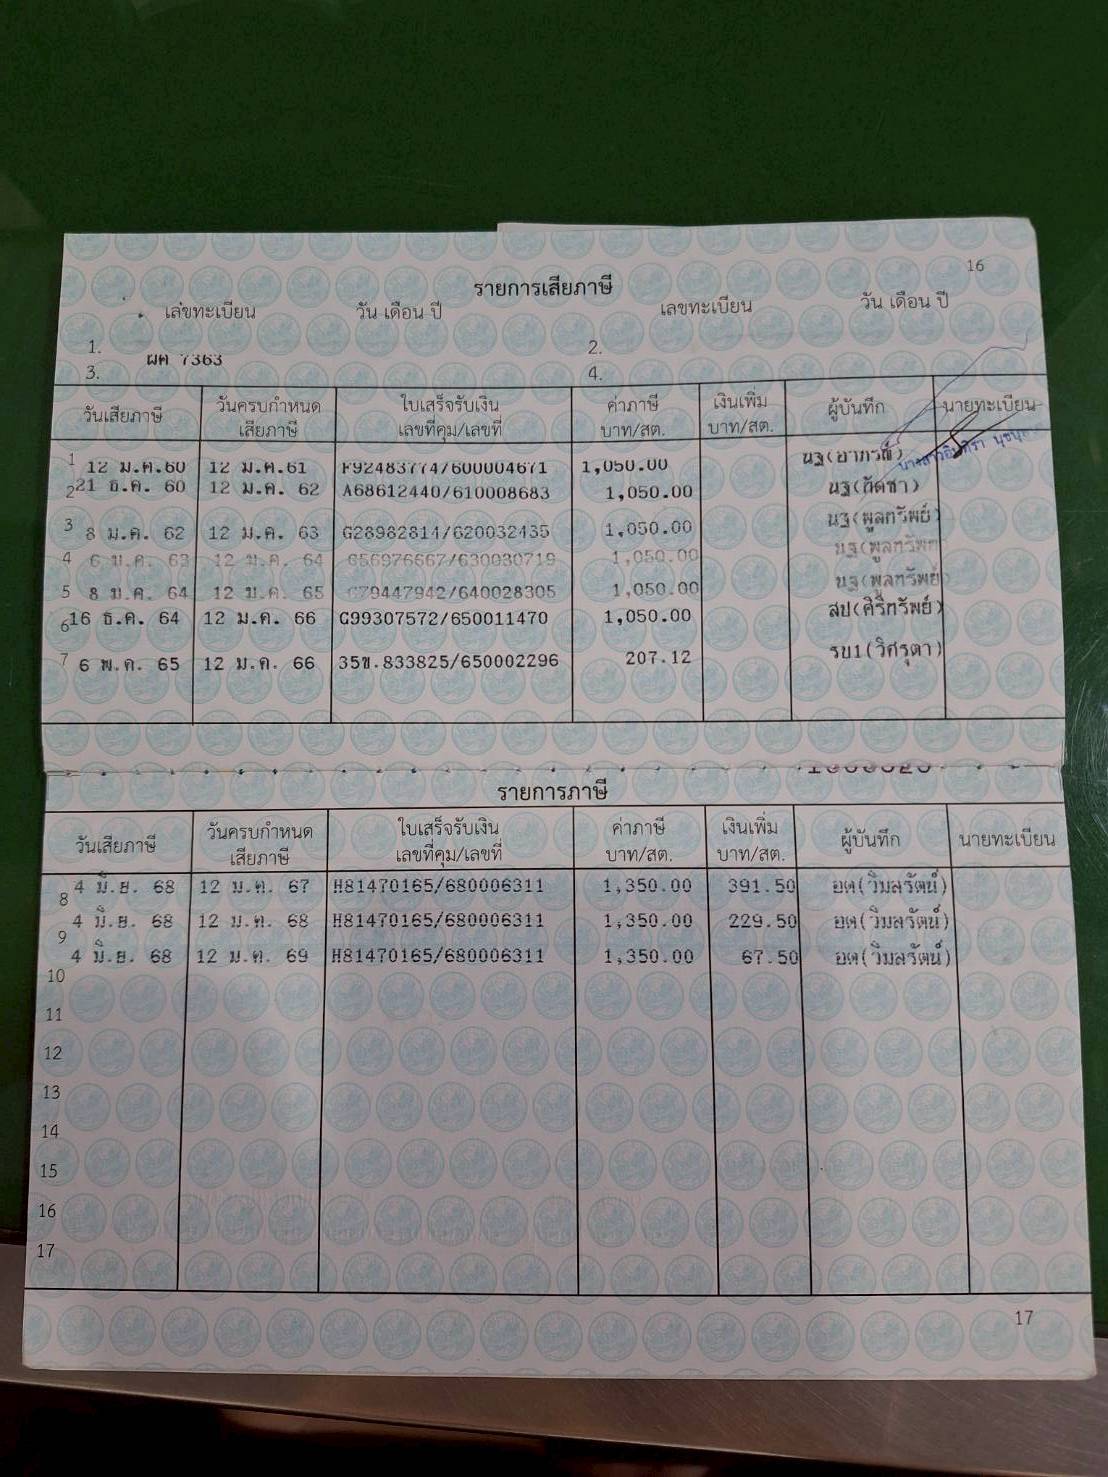 16
รายการเสียภาษี
เลขทะเบียน วัน เดือน ปี เลขทะเบียน วัน เดือน ปี
1. 2.
ผค 7363
3. 4.
วันเสียภาษี วันครบกำหนดเสียภาษี ใบเสร็จรับเงินเลขที่คุม/เลขที่ ค่าภาษีบาท/สต. เงินเพิ่มบาท/สต. ผู้บันทึก นายทะเบียน
1 12 ม.ค.60 12 ม.ค.61 F92483774/600004671 1,050.00 นฐ(อาภรณ์)
2 21 ธ.ค. 60 12 ม.ค. 62 A68612440/610008683 1,050.00 นฐ(กัดชา)
3 8 ม.ค. 62 12 ม.ค. 63 G28982814/620032435 1,050.00 นฐ(พูลทรัพย์)
4 6 ม.ค. 63 12 ม.ค. 64 G56976667/630030719 1,050.00 นฐ(พูลทรัพย
5 8 ม.ค. 64 12 ม.ค. 65 G79447942/640028305 1,050.00 นฐ(พูลทรัพย์
6 16 ธ.ค. 64 12 ม.ค. 66 G99307572/650011470 1,050.00 สป(ศิริทรัพย์)
7 6 พ.ค. 65 12 ม.ค. 66 35ข.833825/650002296 207.12 รย1(วิศรุตา)
รายการภาษี
วันเสียภาษี วันครบกำหนดเสียภาษี ใบเสร็จรับเงินเลขที่คุม/เลขที่ ค่าภาษีบาท/สต. เงินเพิ่มบาท/สต. ผู้บันทึก นายทะเบียน
8 4 มิ.ย. 68 12 ม.ค. 67 H81470165/680006311 1,350.00 391.50 อต(วิมลรัตน์)
9 4 มิ.ย. 68 12 ม.ค. 68 H81470165/680006311 1,350.00 229.50 อต(วิมลรัตน์)
10 4 มิ.ย. 68 12 ม.ค. 69 H81470165/680006311 1,350.00 67.50 อต(วิมลรัตน์)
11
12
13
14
15
16
17
17